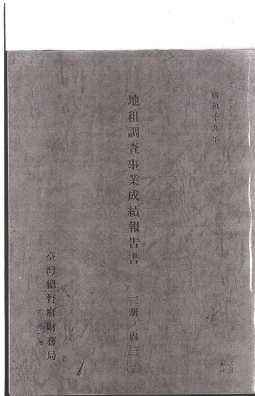 昭和十九年
地租調査事業成績報告書
三冊ノ内
臺灣總督府財務局